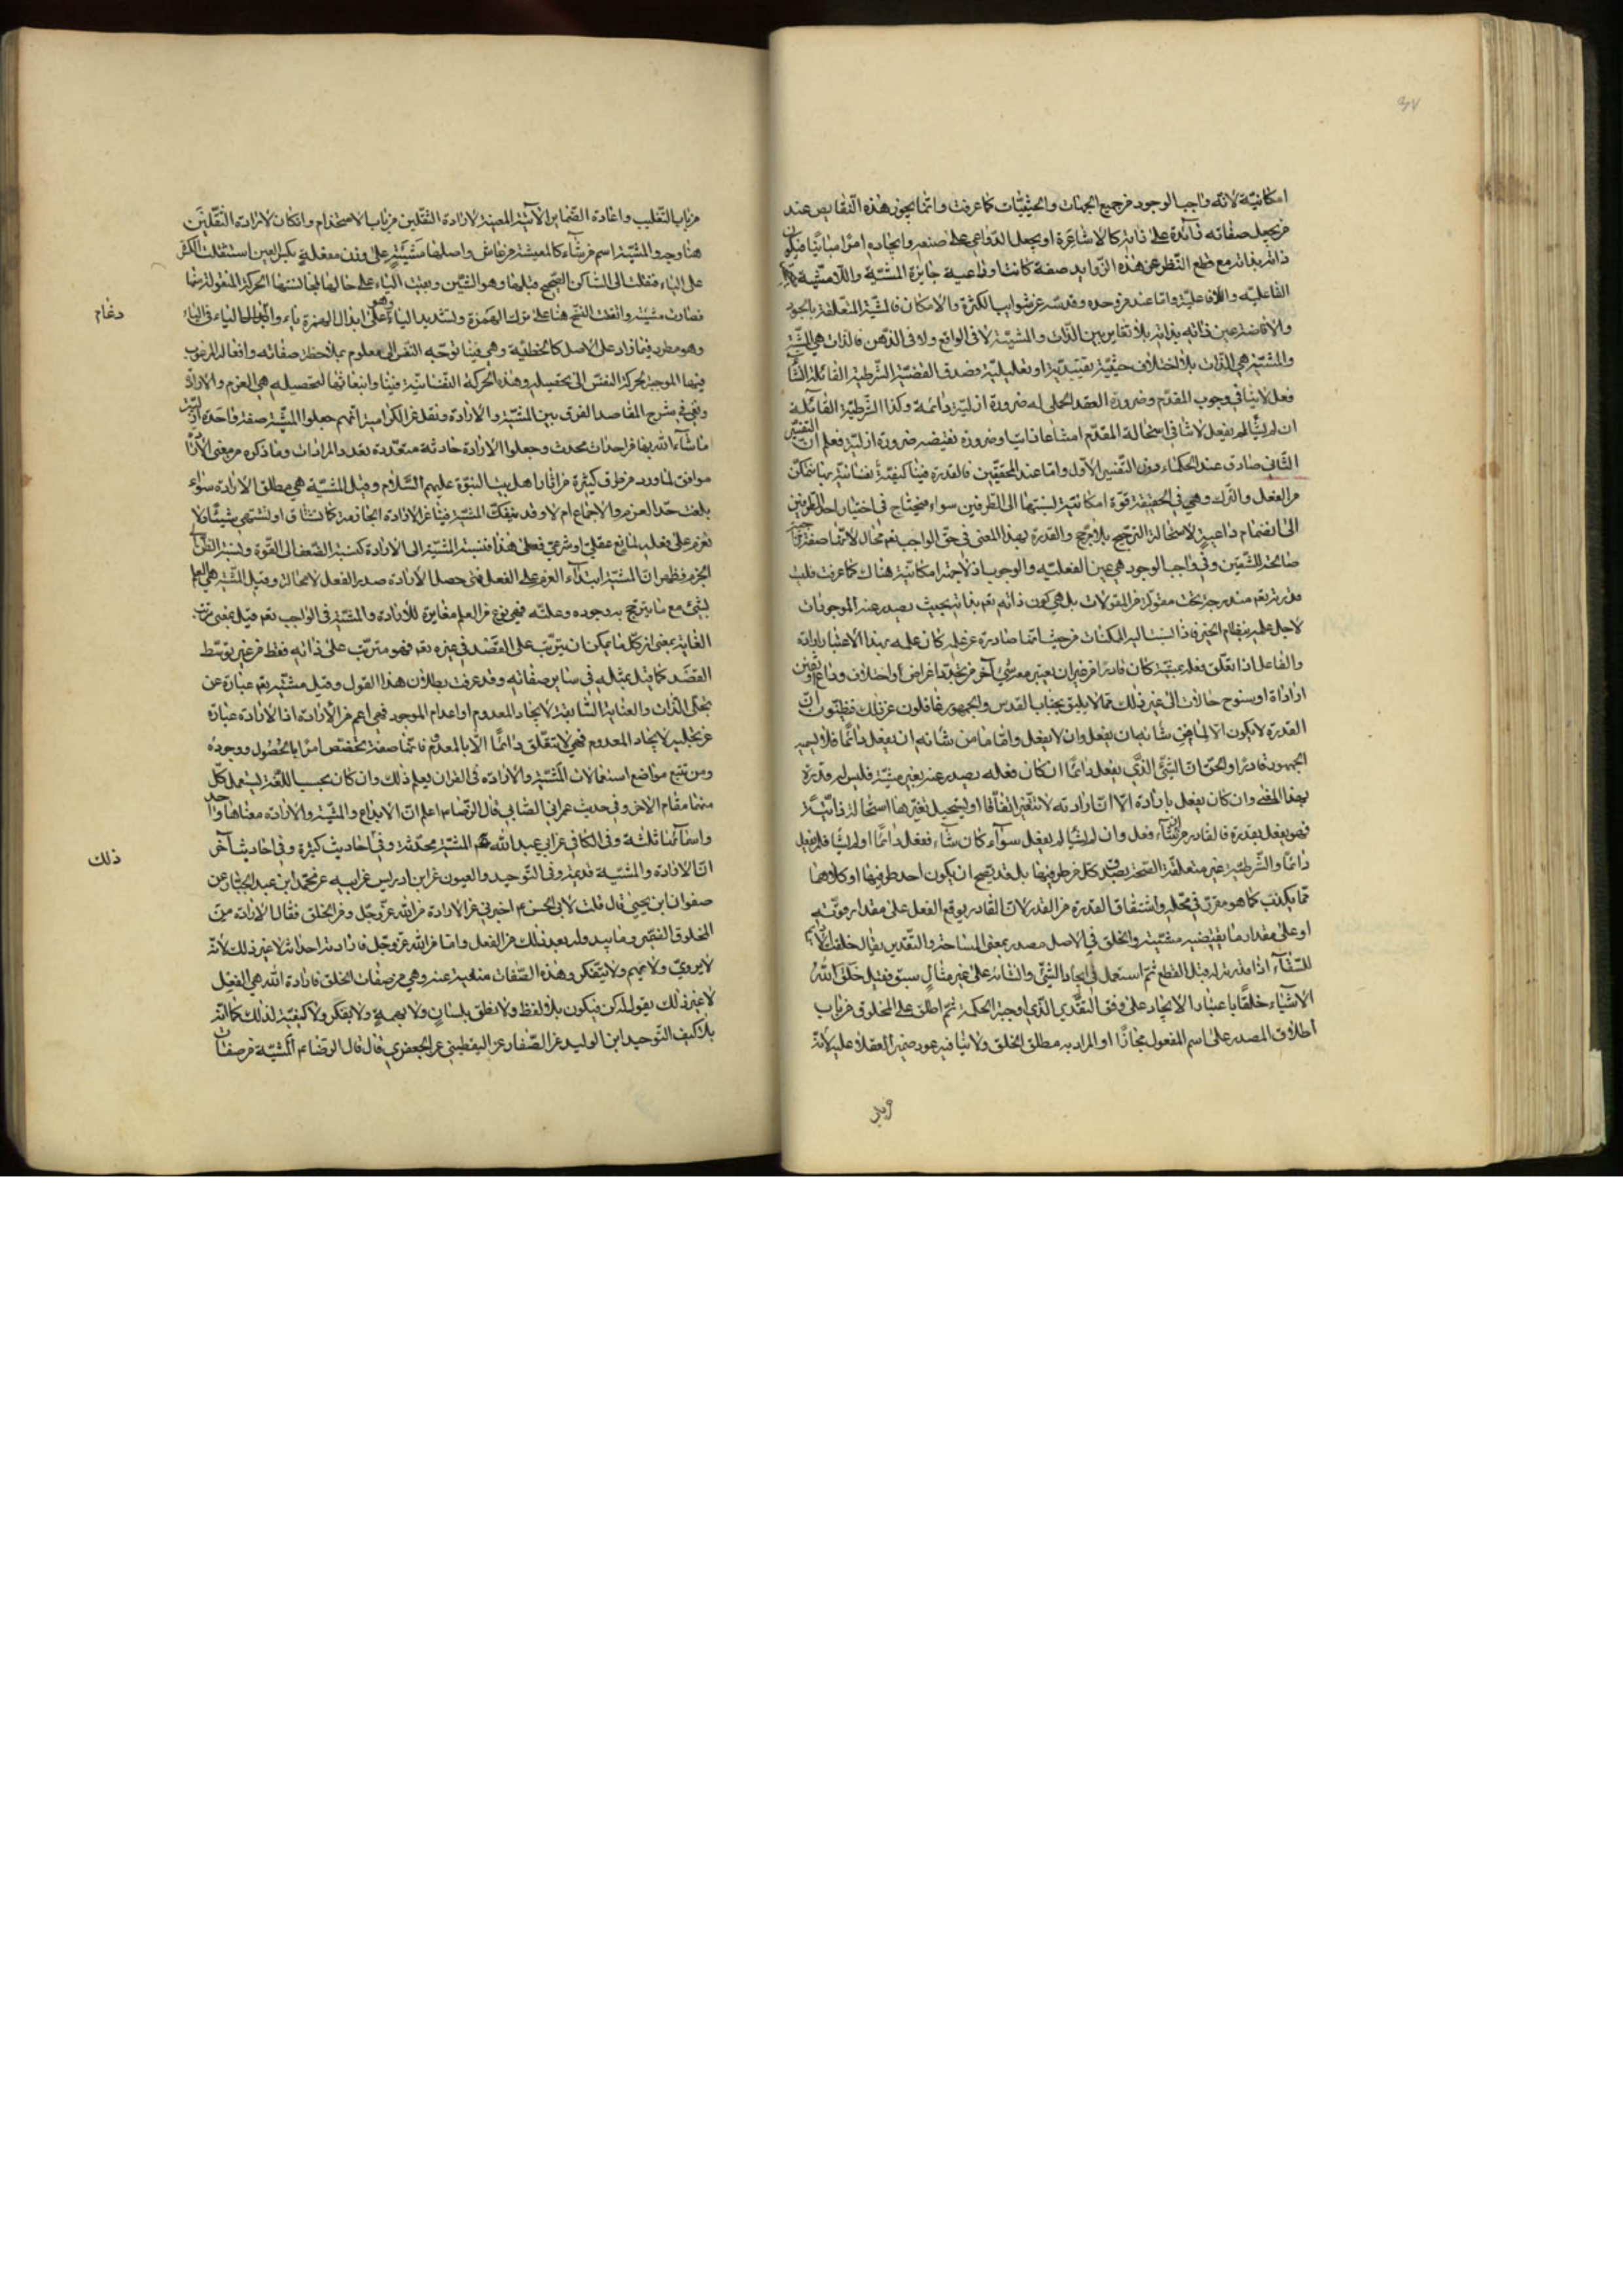 ٣٧
امكانيّة لانّه واجب الوجود من جميع الجهات والحيثيّات كما عرفت وانما يجوز هذه النقايص عند
من يجعل صفاته زائدة على ذاته كالاشاعرة او يجعل الدّواعي على صنعه وايجاده امرًا مباينًا فيكون
ذاته بذاته مع قطع النّظر عن هذه الزّوايد صفة كانت او داعية جايزة المشيّة واللامشيّة
الفاعليّه واللافاعليّة وامّا عند من وحده وقدسه عن شوايب الكثرة والامكان فالمشيّة المتعلّقة بالجود
والافاضة عين ذاته بذاته بلا تغاير بين الذّات والمشيّة لا في الواقع ولا في الذّهن فالذات هي المشيّة
والمشيّة هي الذّات بلا اختلاف حيثيّة تقييديّة او تعليليّة وصدق القضيّة الشّرطية القائلة ان شاء
فعل لا ينافي وجوب المقدّم وضرورة العقد الحملي له ضرورة ازليّة دائمة وكذا الشّرطيّة القائلة
ان لم يشأ لم يفعل لا ينافي استحالة المقدّم امتناعا ذاتيا وضرورة نقيضه ضرورة ازليّة فعلم ان التّفسير
الثّاني صادق عند الحكماء دون التّفسير الاوّل وامّا عند المحقّقين فالقدرة فينا كيفيّة نفسانيّة بها يتمكّن
من الفعل والتّرك وهي في الحقيقة قوّة امكانيّة نسبتها الى الطّرفين سواء فيحتاج في اختيار احد الطّرفين
الى انضمام داعية لاستحالة التّرجيح بلا مرجّح والقدرة بهذا المعنى في حقّ الواجب تعم محال لانّها صفة
صالحة للشّقّين وفي واجب الوجود هي عين الفعليّه والوجوب اذ لا جهة امكانيّة هناك كما عرفت فليت
قدرته تعم مندرجة تحت مقولة من المقولات بل هي كون ذاته تعم بذاته بحيث يصدر عنه الموجودات
لاجل علمه بنظام الخير فاذا نسبت اليه الممكنات من حيث انها صادرة عن علمه كان علمه بهذا الاعتبار ارادة
والفاعل اذا تعلّق فعله بمشيّة كان قادرا من غير ان يعتبر معه شيء آخر من تجدّد اغراض او اختلاف دواع او تفنّن
ارادات او سنوح حالات الى غير ذلك ممّا لا يليق بجناب القدس والجمهور غافلون عن ذلك فيظنّون ان
القدرة لا يكون الا لما من شانه ان يفعل وان لا يفعل وامّا ما من شانه ان يفعل دائما فلا يسمّيه
الجمهور قادرًا والحقّ انّ الشّئ الّذي يفعل دائما ان كان فعله يصدر عنه بغير مشيّة فليس له قدرة
بهذا المعنى وان كان يفعل بارادة الا انّ ارادته لا تتغيّر اتّفاقا او يستحيل تغيّرها استحالة ذاتيّة
فهو يفعل بقدرة فالقادر من ان شاء فعل وان لم يشأ لم يفعل سواء كان شاء ففعل دائما او لم يشأ فلم يفعل
دائما والشّرطيّة غير متعلّقة الصّحّة بصدق كلّ من طرفيها بل قد يصحّ ان يكون احد طرفيها او كلاهما
ممّا يكذب كما هو مقرّر في محلّه واشتقاق القدرة من القدر لانّ القادر يوقع الفعل على مقدار قوّته
او على مقدار ما يقتضيه مشيّته والخلق في الاصل مصدر بمعنى المساحة والتّقدير يقال خلقت الاديم
للسّقاء اذا قدرته له قبل القطع ثمّ استعمل في ايجاد الشّئ وانشائه على غير مثال سبق فقيل خلق الله
الاشياء خلقًا باعتبار الايجاد على وفق التقدير الّذي اوجبته الحكمة ثمّ اطلق على المخلوق من باب
اطلاق المصدر على اسم المفعول مجازًا او المراد به مطلق الخلق ولا ينافيه عود ضمير العقلاء عليه لانّه
من باب التّغليب واعادة الضّماير الآتية المعينة لارادة الثّقلين من باب الاستخدام وان كان لارادة الثّقلين
هنا وجه والمشيّة اسم من شاء كالمعيشة من عاش واصلها مشيئة على وزن مفعلة بكسر العين استثقلت الكسرة
على الياء فنقلت الى السّاكن الصّحيح قبلها وهو الشّين وبقيت الياء على حالها لمجانستها الحركة المنقولة منها
فصارت مشيئة واتفقت النسخ هنا على ترك الهمزة وتشديد الياء وهو على ابدال الهمزة ياء وادغامها الياء في الياء
دغام
وهو مطرد فيما زاد على الاصل كالخطيّة وهي فينا توجّه النّفس الى معلوم بملاحظة صفاته وافعاله المرغوب
فيها الموجبة لحركة النّفس الى تحصيله وهذه الحركة النّفسانيّة فينا وانبعاثها لتحصيله هي العزم والارادة
وبقي في شرح المقاصد الفرق بين المشيّة والارادة ونقل عن الكراميّة انّهم جعلوا المشيّة صفة واحدة ازليّة
ما شاء الله بها من احداث محدث وجعلوا الارادة حادثة متعدّدة بعدد المرادات وما ذكره من معنى الارادة
موافق لما ورد من طرق كثيرة من اثار اهل بيت النبوّة عليهم السّلام وقيل المشيّة هي مطلق الارادة سواء
بلغت حدّ العزم والاجماع ام لا وقد ينفكّ المشيّة فينا عن الارادة الجازمة كما نشتاق او نشتهي شيئًا ولا
نعزم على فعله لمانع عقلي او شرعي فعلى هذا فنسبة المشيّة الى الارادة كنسبة الضّعف الى القوّة ونسبة الظّن الى
الجزم فظهر انّ المشيّة ابتداء العزم على الفعل فمتى حصل الارادة صدر الفعل لا محالة وقيل المشيّة هي العلم
بشئ مع ما يترجّح به وجوده وعلمه فهي نوع من العلم مغايرة للارادة والمشيّة في الواجب تعم قيل بمعنى
الغاية بمعنى ان كل ما يمكن ان يترتّب على القصد في غيره تعم فهو مترتّب على ذاته فقط من غير توسّط
القصد كما قيل بمثله في ساير صفاته وقد عرفت بطلان هذا القول وقيل مشيّته تعم عبارة عن
تجلّى الذّات والعناية السّابقة لايجاد المعدوم او اعدام الموجود فهي اعم من الارادة اذ الارادة عبارة
عن تجليه لايجاد المعدوم فهي لا تتعلّق دائما الّا بالمعدوم فانّها صفة تخصّص امرًا بالحصول ووجوده
ومن تتبع مواضع استعمالات المشيّة والارادة في القران يعلم ذلك وان كان بحسب اللّغة يستعمل كلّ
منهما مقام الاخر وفي حديث عمران الصّابي قال الرّضا ع اعلم انّ الابداع والمشيّة والارادة معناها واحد
واسماؤها ثلثة وفي الكافي عن ابي عبد الله ع المشيّة محدثة وفي احاديث كثيرة وفي احاديث آخر
ذلك
انّ الارادة والمشيّة قديمة وفي التّوحيد والعيون عن ابن ادريس عن ابيه عن محمّد ابن عبد الجبار عن
صفوان ابن يحيى قال قلت لابي الحسن ع اخبرني عن الارادة من الله عزّ وجلّ ومن الخلق فقال الارادة من
المخلوق الضّمير وما يبدو له بعد ذلك من الفعل وامّا من الله عزّ وجلّ فارادته احداثه لا غير ذلك لانّه
لا يروّي ولا يهم ولا يتفكّر وهذه الصّفات منفيّة عنه وهي من صفات الخلق فارادة الله هي الفعل
لا غير ذلك يقول له كن فيكون بلا لفظ ولا نطق بلسان ولا همة ولا تفكّر ولا كيفيّة لذلك كما انّه
بلا كيف التّوحيد ابن الوليد عن الصّفار عن اليقطيني عن الجعفري قال قال الرضا ع المشيّة من صفات